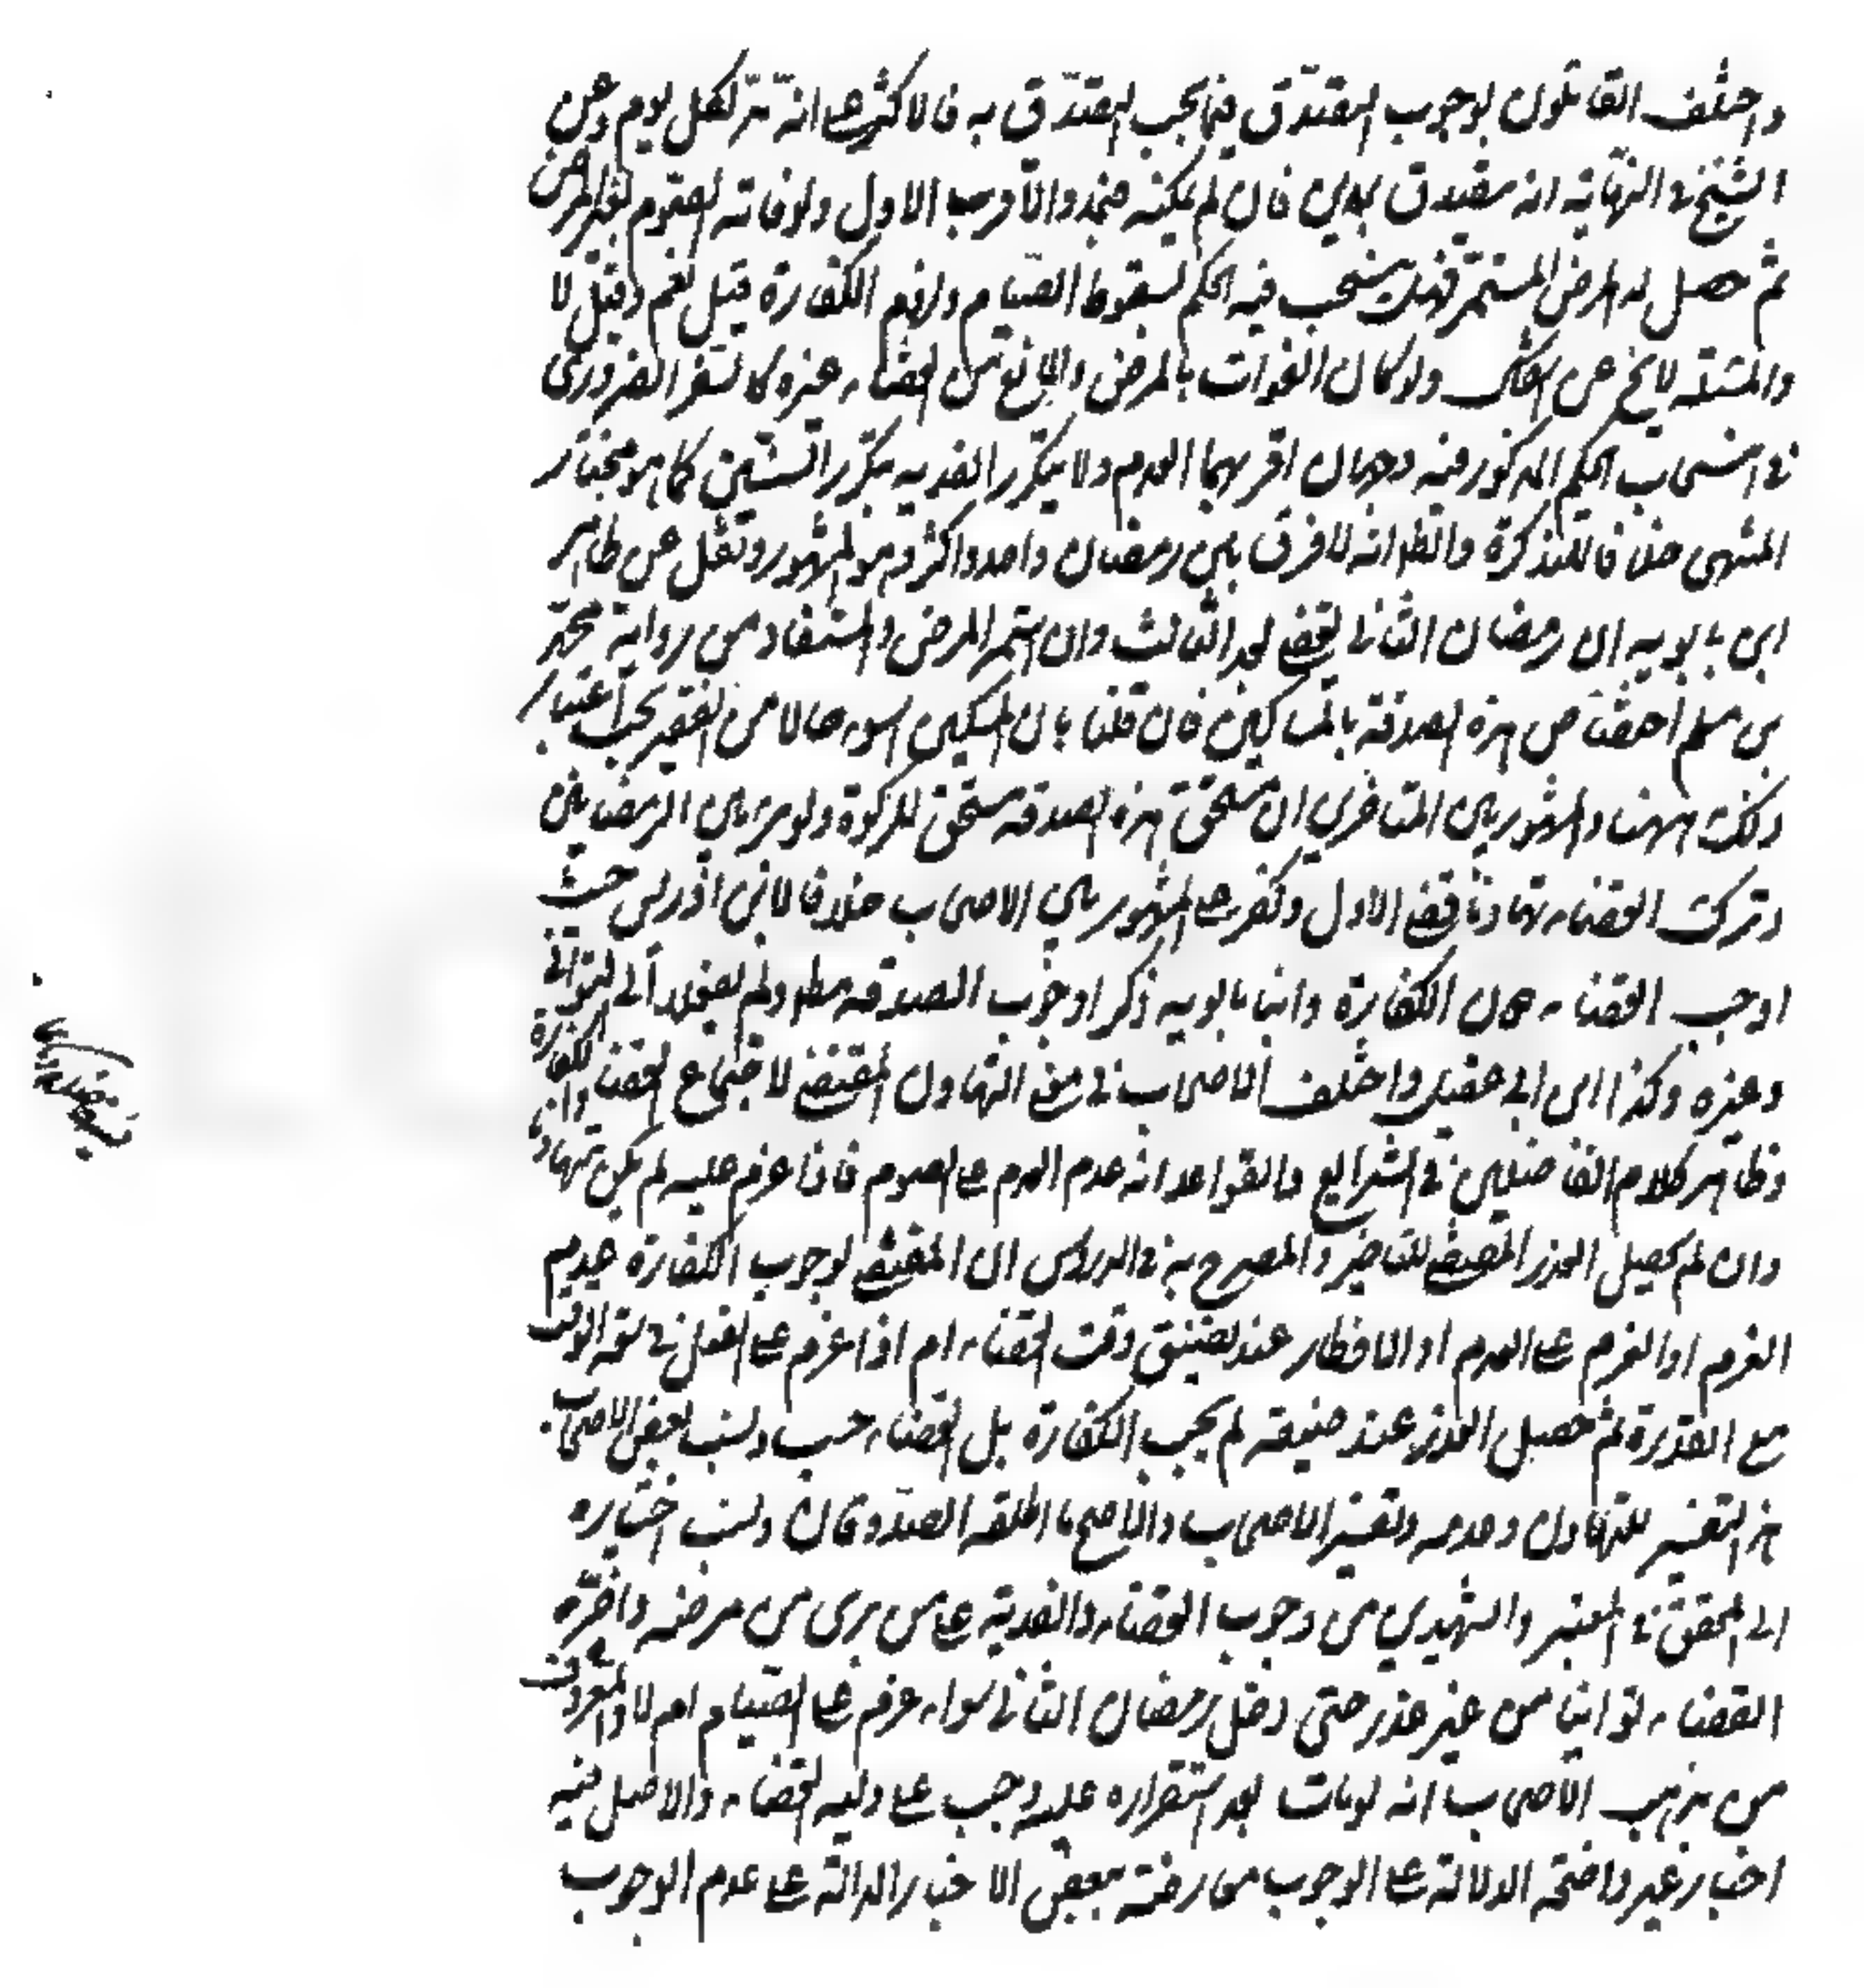 واختلف القائلون بوجوب التصدّق فيما يجب التصدّق به فالاكثر على انّه مدّ لكل يوم وعن
الشيخ في النهاية انه يتصدق بمدين فان لم يمكنه فبمد والاقرب الاول ولو فاته الصوم بغير المرض
ثم حصل له المرض المستمر فهل ينسحب فيه الحكم بسقوط الصيام ولزوم الكفارة قيل نعم وقيل لا
والمسئلة لا يخ عن اشكال ولو كان الفوات بالمرض والمانع من القضاء غيره كالسفر الضروري
ففي انسحاب الحكم المذكور فيه وجهان اقربهما العدم ولا يتكرر الفدية بتكرر السنين كما هو مختار
المنتهى خلافا للتذكرة والظ انه لا فرق بين رمضان واحد واكثر وهو المشهور ونقل عن ظاهر
ابن بابويه ان رمضان الثاني يقضى بعد الثالث وان استمر المرض والمستفاد من رواية محمّد
بن مسلم اختصاص هذه الصدقة بالمساكين فان قلنا بان المسكين اسوء حالا من الفقير يجب اعتبار
ذلك ههنا والمشهور بين المتاخرين ان مستحق هذه الصدقة مستحق للزكوة ولو برا بين الرمضانين
وترك القضاء تهاونا قضى الاول وكفر على المشهور بين الاصحاب خلافا لابن ادريس حيث
اوجب القضاء دون الكفارة وابنا بابويه ذكرا وجوب الصدقة مط ولم يفصلا الى التواني
وغيره وكذا ابن ابي عقيل واختلف الاصحاب في معنى التهاون المقتضي لاجتماع القضاء والكفارة
وظاهر كلام الفاضلين في الشرايع والقواعد انه عدم العزم على الصوم فاذا عزم عليه لم يكن تهاونا
وان لم يحصل العذر المقتضي للتاخير والمصرح به في الدروس ان المقتضي لوجوب الكفارة عدم
العزم او العزم على العدم او الافطار عند تضيق وقت القضاء اما اذا عزم على الفعل في سعة الوقت
مع القدرة ثم حصل العذر عند ضيقه لم يجب الكفارة بل القضاء حسب ونسب بعض الاصحاب
هذا التفسير للتهاون وعدمه وتفسير الاصحاب والاصح ما اطلقه الصدوقان ونسب اختياره
الى المحقق في المعتبر والشهيدين من وجوب القضاء والفدية على من برئ من مرضه واخّر
القضاء توانيا من غير عذر حتى دخل رمضان الثاني سواء عزم على الصيام ام لا والمعروف
من مذهب الاصحاب انه لو مات بعد استقراره عليه وجب على وليه القضاء والاصل فيه
اخبار غير واضحة الدلالة على الوجوب معارضة ببعض الاخبار الدالة على عدم الوجوب